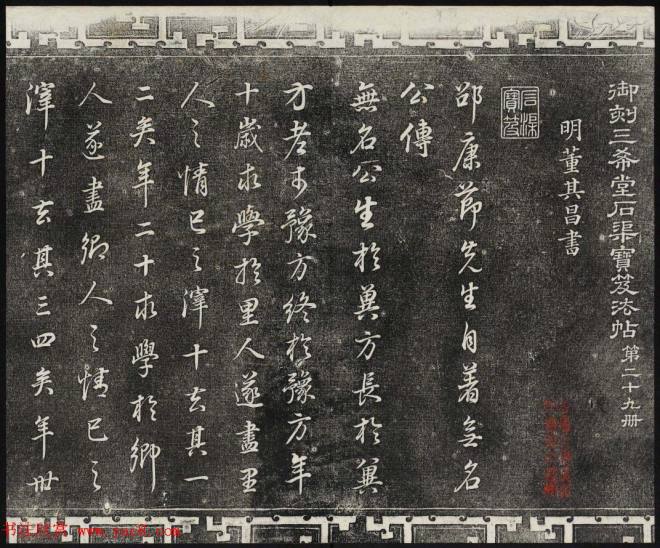 御刻三希堂石渠寶笈法帖 第二十九册
明董其昌書
石渠寶笈
邵康節先生自著無名
公傳
無名公生於冀方長於冀
方老於豫方終於豫方年
十歲求學於里人遂盡里
人之情己之滓十去其一
二矣年二十求學於鄉
人遂盡鄉人之情己之
滓十去其三四矣年卅